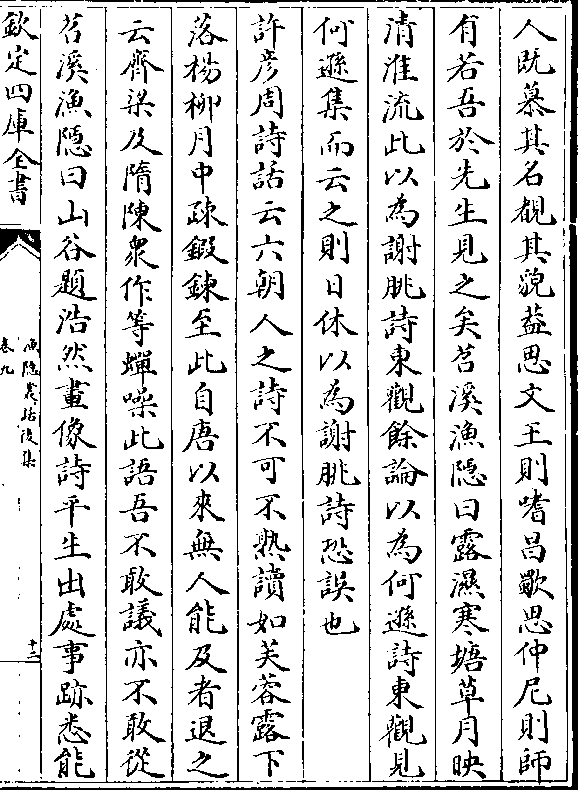 人既慕其名覩其貌蓋思文王則嗜昌歜思仲尼則師
有若吾於先生見之矣苕溪漁隱曰露濕寒塘草月映
清淮流此以為謝朓詩東觀餘論以為何遜詩東觀見
何遜集而云之則日休以為謝朓詩恐誤也
許彦周詩話云六朝人之詩不可不熟讀如芙蓉露下
落楊柳月中疎鍛鍊至此自唐以來無人能及者退之
云齊梁及隋陳衆作等蟬噪此語吾不敢議亦不敢從
苕溪漁隱曰山谷題浩然畫像詩平生出處事跡悉能
欽定四庫全書
漁隱叢話後集
卷九
十二